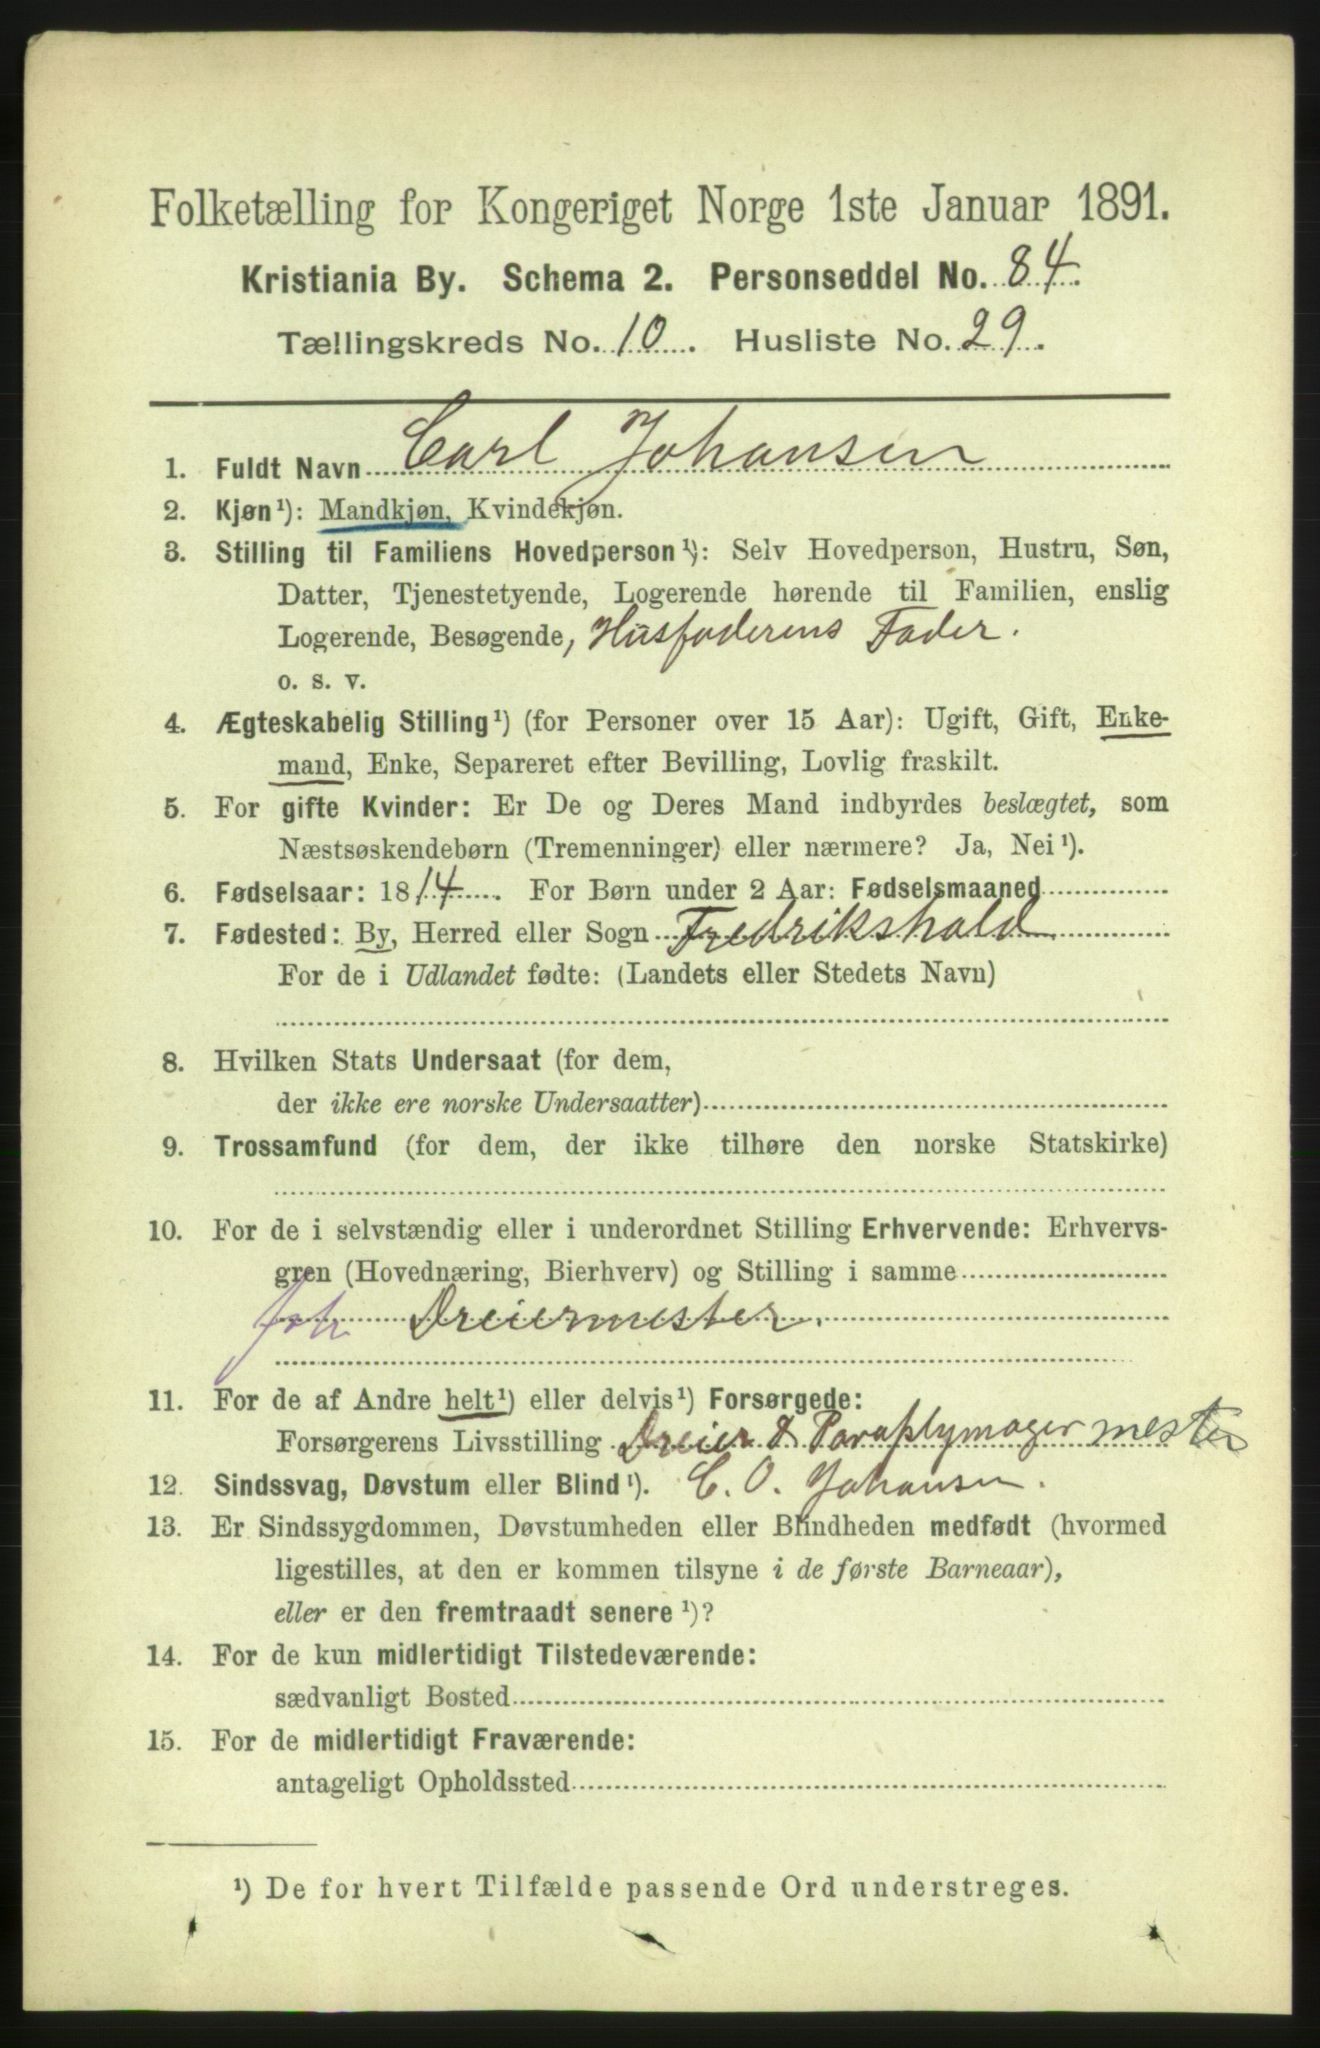 Folketælling for Kongeriget Norge 1ste Januar 1891.
Kristiania By. Schema 2. Personseddel No. 84.
Tællingskreds No. 10. Husliste No. 29.
1. Fuldt Navn Carl Johansen
2. Kjøn¹): Mandkjøn, Kvindekjøn.
3. Stilling til Familiens Hovedperson¹): Selv Hovedperson, Hustru, Søn,
Datter, Tjenestetyende, Logerende hørende til Familien, enslig
Logerende, Besøgende, Husfaderens Fader.
o. s. v.
4. Ægteskabelig Stilling¹) (for Personer over 15 Aar): Ugift, Gift, Enke-
mand, Enke, Separeret efter Bevilling, Lovlig fraskilt.
5. For gifte Kvinder: Er De og Deres Mand indbyrdes beslægtet, som
Næstsøskendebørn (Tremenninger) eller nærmere? Ja, Nei¹).
6. Fødselsaar: 1814. For Børn under 2 Aar: Fødselsmaaned
7. Fødested: By, Herred eller Sogn Fredrikshald
For de i Udlandet fødte: (Landets eller Stedets Navn)
8. Hvilken Stats Undersaat (for dem,
der ikke ere norske Undersaatter)
9. Trossamfund (for dem, der ikke tilhøre den norske Statskirke)
10. For de i selvstændig eller i underordnet Stilling Erhvervende: Erhvervs-
gren (Hovednæring, Bierhverv) og Stilling i samme
Dreiermester.
11. For de af Andre helt¹) eller delvis¹) Forsørgede:
Forsørgerens Livsstilling Dreier & Paraplymagermester
12. Sindssvag, Døvstum eller Blind¹). C. O. Johansen.
13. Er Sindssygdommen, Døvstumheden eller Blindheden medfødt (hvormed
ligestilles, at den er kommen tilsyne i de første Barneaar),
eller er den fremtraadt senere¹)?
14. For de kun midlertidigt Tilstedeværende:
sædvanligt Bosted
15. For de midlertidigt Fraværende:
antageligt Opholdssted
¹) De for hvert Tilfælde passende Ord understreges.